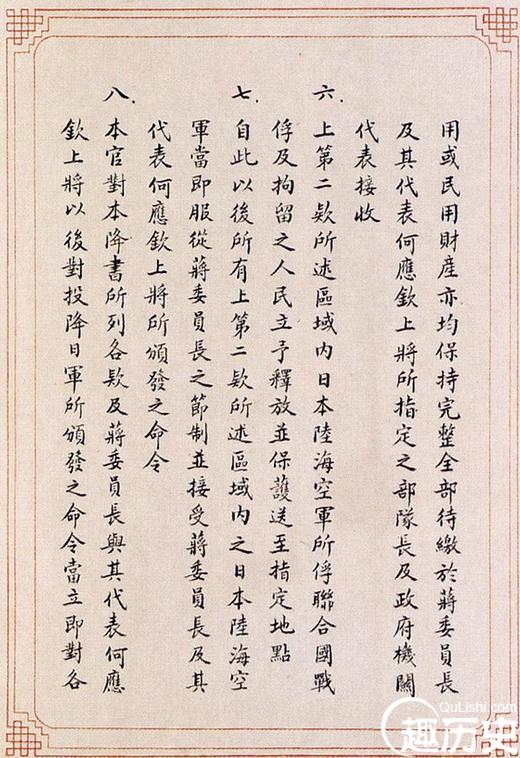 用或民用財産亦均保持完整全部待繳於蔣委員長
及其代表何應欽上將所指定之部隊長及政府機關
代表接收
六.上第二欵所述區域内日本陸海空軍所俘聯合國戰
俘及拘留之人民立予釋放並保護送至指定地點
七.自此以後所有上第二欵所述區域内之日本陸海空
軍當即服從蔣委員長之節制並接受蔣委員長及其
代表何應欽上將所頒發之命令
八.本官對本降書所列各欵及蔣委員長與其代表何應
欽上將以後對投降日軍所頒發之命令當立即對各
QuLishi.com
趣历史